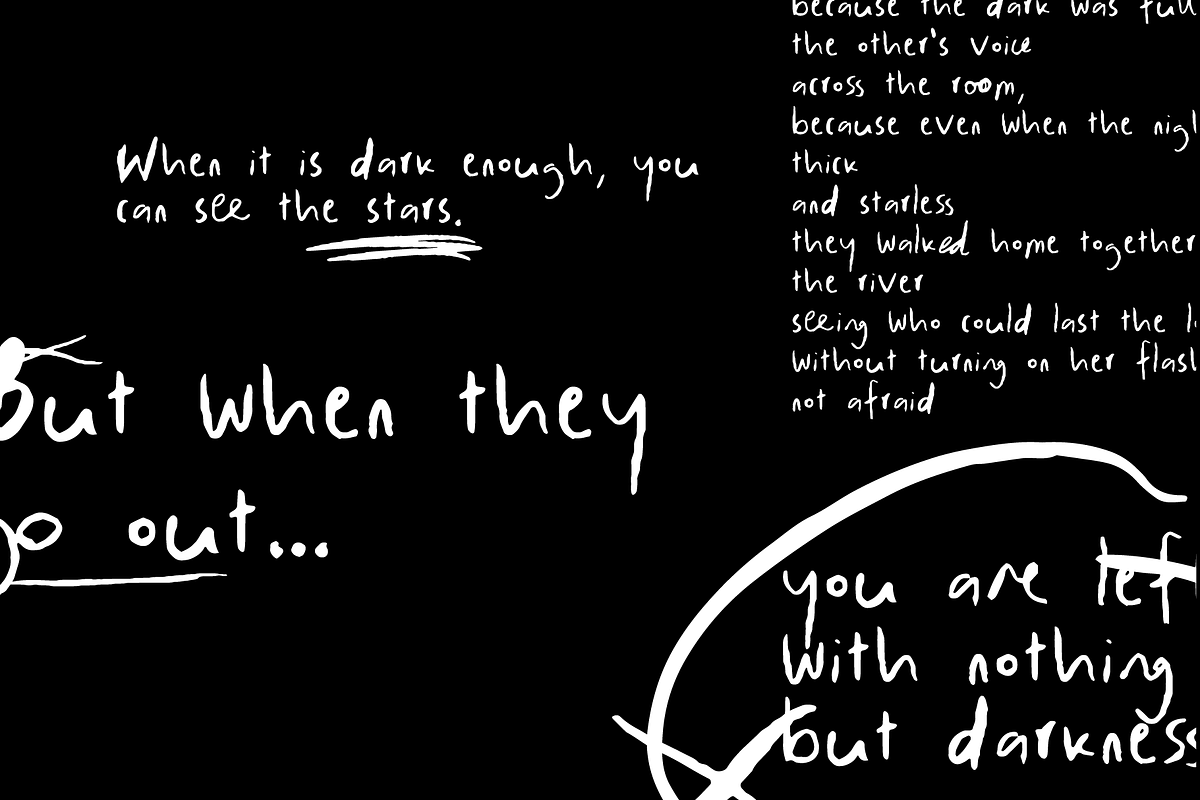 When it is dark enough, you
can see the stars.
but when they
go out...
because the dark was full
the other's voice
across the room,
because even when the
thick
and starless
they walked home together
the river
seeing who could last the
without turning on her
not afraid
you are
with nothing
but darkness